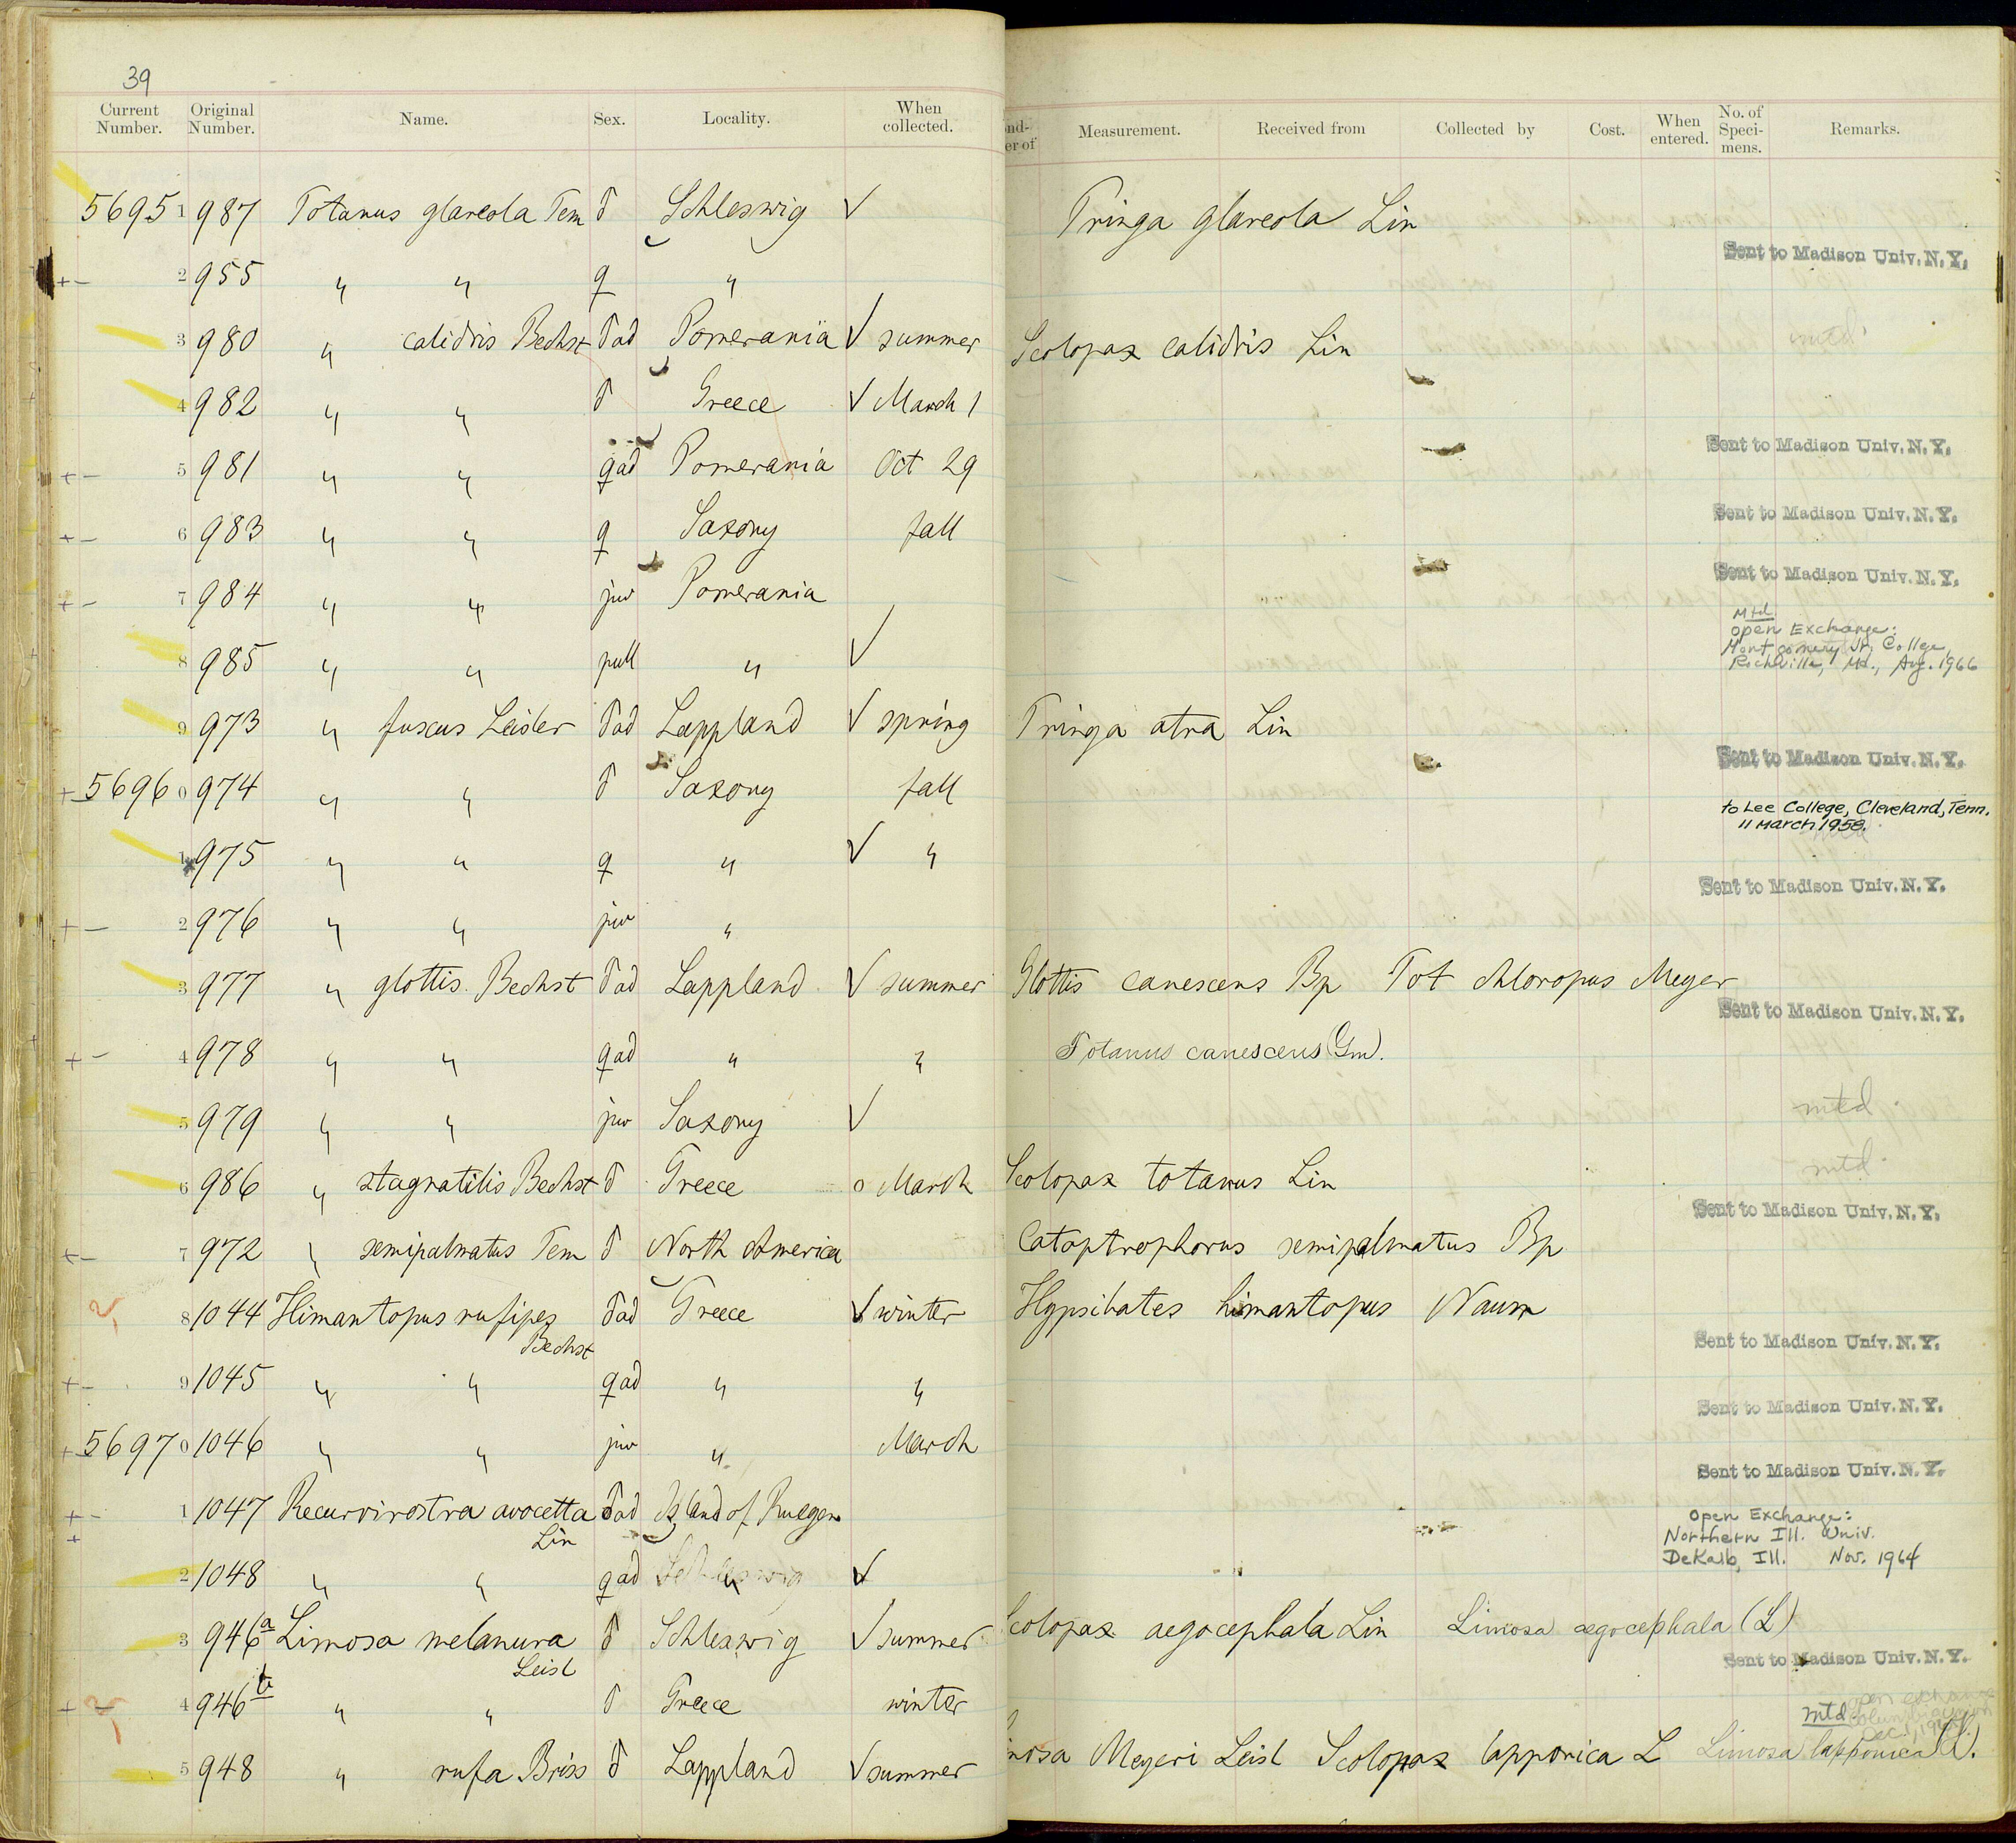 39
Current Number. Original Number. Name. Sex. Locality. When collected. Measurement. Received from Collected by Cost. When entered. No. of Speci-mens. Remarks.
56951 987 Totanus glareola Tem ♂ Schleswig ✓ Tringa glareola Lin
Sent to Madison Univ. N.Y.
+- 2 955 " " ♀ "
3 980 " calidris Bechst ♂ad Pomerania ✓ summer Scolopax calidris Lin mtd
4 982 " " ♂ Greece ✓ March 1
Sent to Madison Univ. N.Y.
+- 5 981 " " ♀ad Pomerania Oct 29
Sent to Madison Univ. N.Y.
+- 6 983 " " ♀ Saxony fall
Sent to Madison Univ. N.Y.
+- 7 984 " " juv Pomerania
Mtd
open Exchange:
Montgomery Jr. College,
Rockville, Md., Aug. 1966
8 985 " " pull " ✓
9 973 " fuscus Leisler ♂ad Lappland ✓ spring Tringa atra Lin
Sent to Madison Univ. N.Y.
+- 56960 974 " " ♂ Saxony fall
to Lee College, Cleveland, Tenn.
11 March 1958.
1 975 " " ♀ " ✓ "
Sent to Madison Univ. N.Y.
+- 2 976 " " juv "
3 977 " glottis Bechst ♂ad Lappland ✓ summer Glottis canescens Bp Tot chloropus Meyer
Sent to Madison Univ. N.Y.
+- 4 978 " " ♀ad " " Totanus canescens (Gm).
5 979 " " juv Saxony ✓ mtd
6 986 " stagnatilis Bechst ♂ Greece o March Scolopax totanus Lin mtd
Sent to Madison Univ. N.Y.
+- 7 972 " semipalmatus Tem ♂ North America Catoptrophorus semipalmatus Bp
8 1044 Himantopus rufipes Bechst ♂ad Greece ✓ winter Hypsibates himantopus Naum
Sent to Madison Univ. N.Y.
+- 9 1045 " " ♀ad " "
Sent to Madison Univ. N.Y.
+- 56970 1046 " " juv " March
Sent to Madison Univ. N.Y.
+- 1 1047 Recurvirostra avocetta Lin ♂ad Island of Ruegen
+
Open Exchange:
Northern Ill. Univ.
DeKalb, Ill. Nov. 1964
2 1048 " " ♀ad Schleswig " ✓
3 946a Limosa melanura Leisl ♂ Schleswig ✓ summer Scolopax aegocephala Lin Limosa aegocephala (L)
Sent to Madison Univ. N.Y.
+- 4 946b " " ♂ Greece winter
mtd. open exchange
5 948 " rufa Briss ♂ Lappland ✓ summer Meyeri Leisl Scolopax lapponica L Limosa lapponica (L).